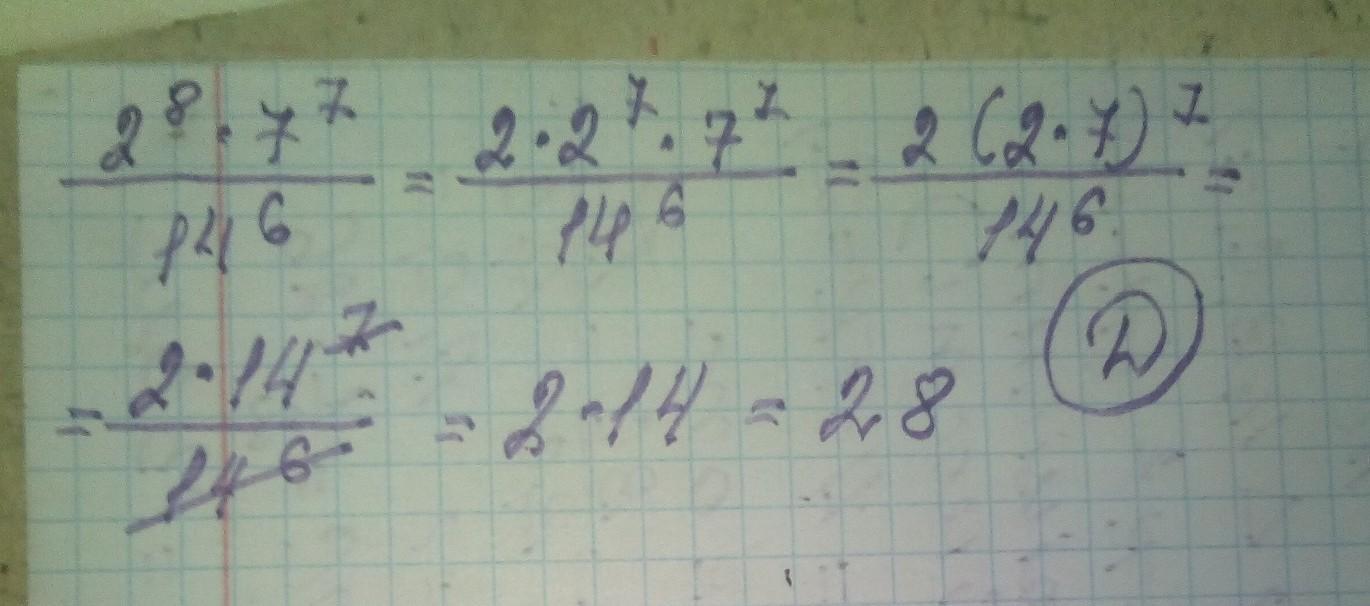 2⁸·7⁷/14⁶ = 2·2⁷·7⁷/14⁶ = 2(2·7)⁷/14⁶ =
= 2·14⁷/14⁶ = 2·14 = 28 D